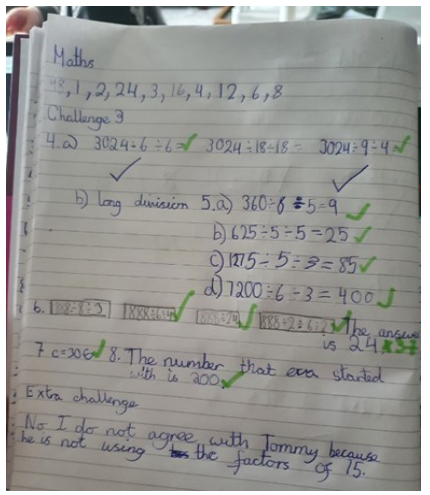 Maths
48, 1, 2, 24, 3, 16, 4, 12, 6, 8
Challenge 3
4.a) 3024÷6÷6= 3024÷18÷18= 3024÷9÷4=
b) long division 5.a) 360÷8÷5=9
b) 625÷5÷5=25
c) 1275÷5÷3=85
d) 7200÷6÷3=400
6. 888÷8÷3 888÷6÷4 888÷24 888÷2÷6÷2 The answer
is 24 37
7 c=306 8. The number that eva started
with is 200.
Extra challenge
No I do not agree with Tommy because
he is not using the factors of 15.